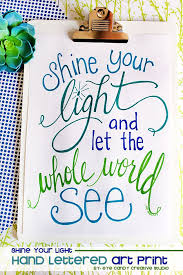 Shine your
light
and
let the
whole world
see
SHINE YOUR LIGHT
HAND LETTERED ART PRINT
BY: EYE CANDY CREATIVE STUDIO